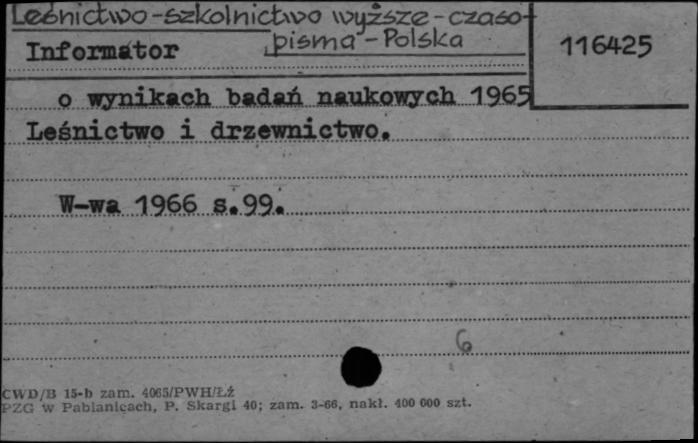 Leśnictwo-szkolnictwo wyższe-czaso-
pisma-Polska
Informator
116425
o wynikach badań naukowych 1965
Leśnictwo i drzewnictwo.
W-wa 1966 s.99.
6
CWD/B 15-b zam. 4065/PWH/Łź
PZG w Pabianicach, P. Skargi 40; zam. 3-66, nakł. 400 000 szt.